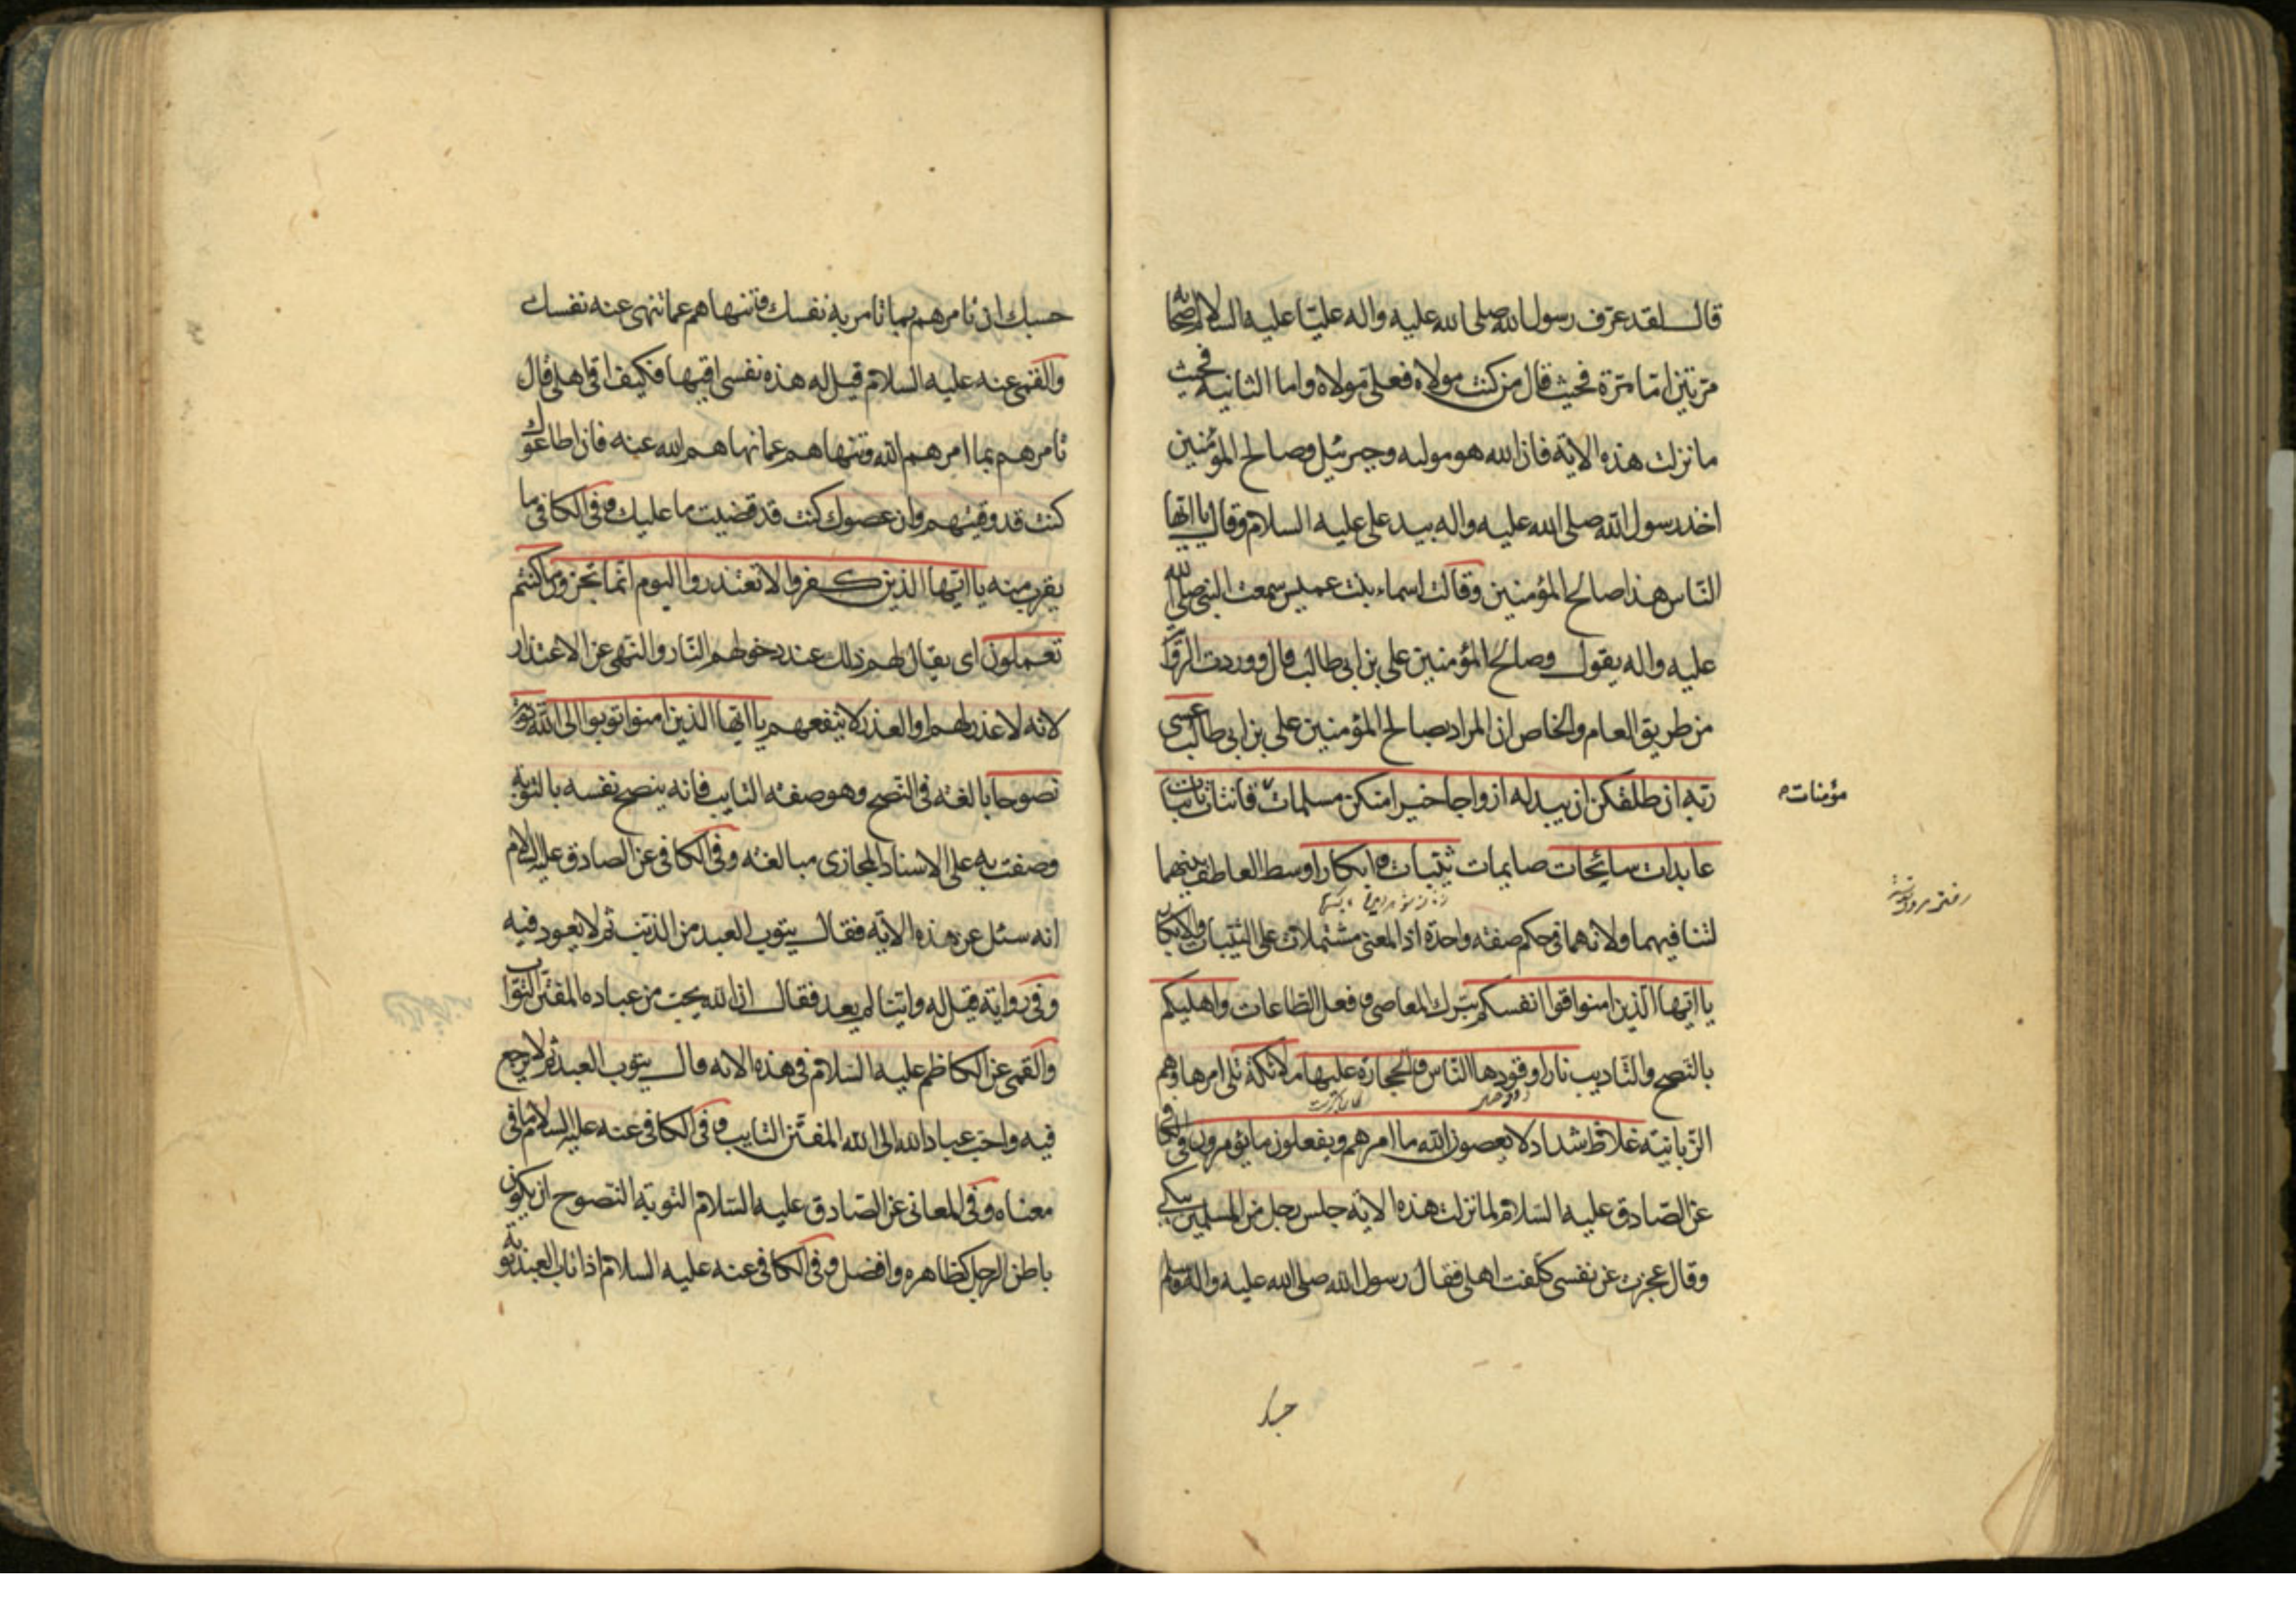 قال لقد عرف رسول الله صلى الله عليه واله عليّا عليه السلام اصحابه
مرتين اما مرة فحيث قال من كنت مولاه فعلى مولاه واما الثانيه فحيث
ما نزلت هذه الاية فان الله هو موليه وجبرئيل وصالح المؤمنين
اخذ رسول الله صلى الله عليه واله بيد على عليه السلام وقال يا ايها
النّاس هذا صالح المؤمنين وقالت اسماء بنت عميس سمعت النبى صلى الله
عليه واله يقول وصالح المؤمنين على بن ابى طالب قال ووردت الرّوا
من طريق العام والخاص ان المراد بصالح المؤمنين على بن ابى طالب عسى
ربّه ان طلقكن ان يبدله ازواجا خيرا منكن مسلمات قانتات تائبات
مؤمنات
عابدات سايحات صايمات ثيّبات وابكارا وسط العاطف بينهما
لتنافيهما ولانهما فى حكم صفة واحدة اذ المعنى مشتملات على الثيّبات والابكار
يا ايّها الّذين امنوا قوا انفسكم بترك المعاصى وفعل الطّاعات واهليكم
بالنّصح والتّاديب نارا وقودها النّاس والحجارة عليها ملائكة تلى امرها وهم
الزّبانية غلاظ شداد لا يعصون الله ما امرهم ويفعلون ما يؤمرون فى الكا
عن الصّادق عليه السّلام لما نزلت هذه الاية جلس رجل من المسلمين يبكى
وقال عجزت عن نفسى كلفت اهلى فقال رسول الله صلى الله عليه واله وسلم
حسبك
حسبك ان تامرهم بما تامر به نفسك وتنهاهم عما تنهى عنه نفسك
والقمى عنه عليه السلام قيل له هذه نفسى اقيها فكيف اقى اهلى قال
تامرهم بما امرهم الله وتنهاهم عما نهاهم الله عنه فان اطاعوك
كنت قد وقيتهم وان عصوك كنت قد قضيت ما عليك وفى الكافى ما
يقرب منه يا ايّها الذين كفروا لا تعتذروا اليوم انّما تجزون ما كنتم
تعملون اى يقال لهم ذلك عند دخولهم النّار والنّهى عن الاعتذار
لانه لا عذر لهم او العذر لا ينفعهم يا ايّها الذين امنوا توبوا الى الله توبة
نصوحا بالغة فى النّصح وهو صفة التايب فانه ينصح نفسه بالتوبة
وصفت به على الاسناد المجازى مبالغة وفى الكافى عن الصادق عليه السلام
انه سئل عن هذه الاية فقال يتوب العبد من الذنب ثم لا يعود فيه
وفى رواية قيل له وايّنا لم يعد فقال ان الله يحبّ من عباده المفتّن التوّاب
والقمى عن الكاظم عليه السّلام فى هذه الاية قال يتوب العبد ثم لا يرجع
فيه واحبّ عباد الله الى الله المفتّن التايب وفى الكافى عنه عليه السلام ما فى
معناه وفى المعانى عن الصّادق عليه السّلام التوبة النّصوح ان يكون
باطن الرجل كظاهره وافضل وفى الكافى عنه عليه السلام اذا تاب العبد توبة